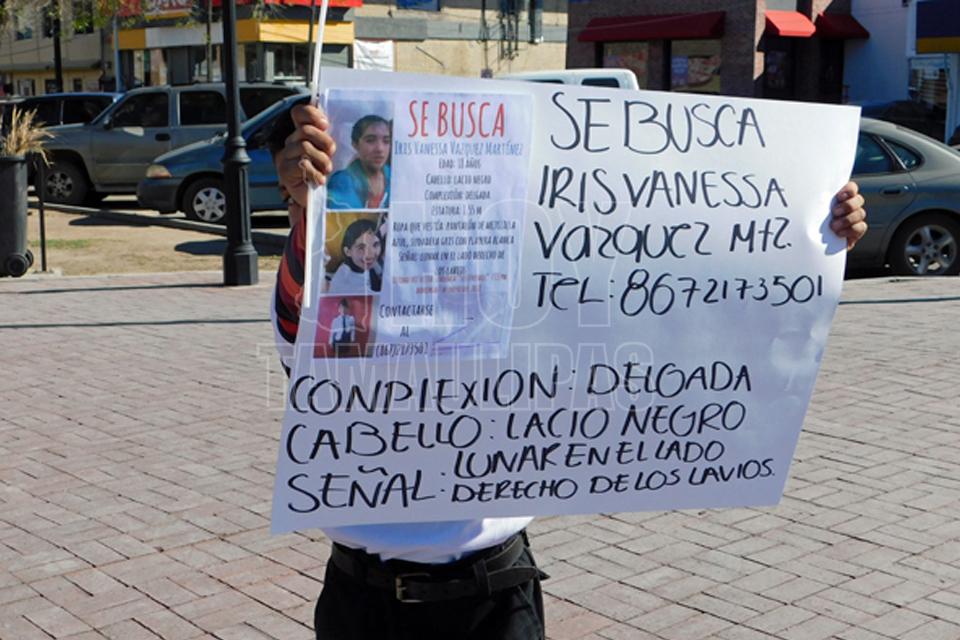 SE BUSCA
IRIS VANESSA VAZQUEZ MARTÍNEZ
EDAD: 18 AÑOS
CABELLO: LACIO NEGRO
COMPLEXIÓN: DELGADA
ESTATURA: 1.55 M
ROPA QUE VESTÍA: PANTALÓN DE MEZCLILLA
AZUL, SUDADERA GRIS CON PLAYERA BLANCA
SEÑAL: LUNAR EN EL LADO DERECHO DE
LOS LABIOS
CONTACTARSE
AL
(867)2173501
SE BUSCA
IRIS VANESSA
VAZQUEZ MTZ.
TEL: 8672173501
CONPLEXION: DELGADA
CABELLO: LACIO NEGRO
SEÑAL: LUNAR EN EL LADO
DERECHO DE LOS LAVIOS.
HOY
TAMAULIPAS